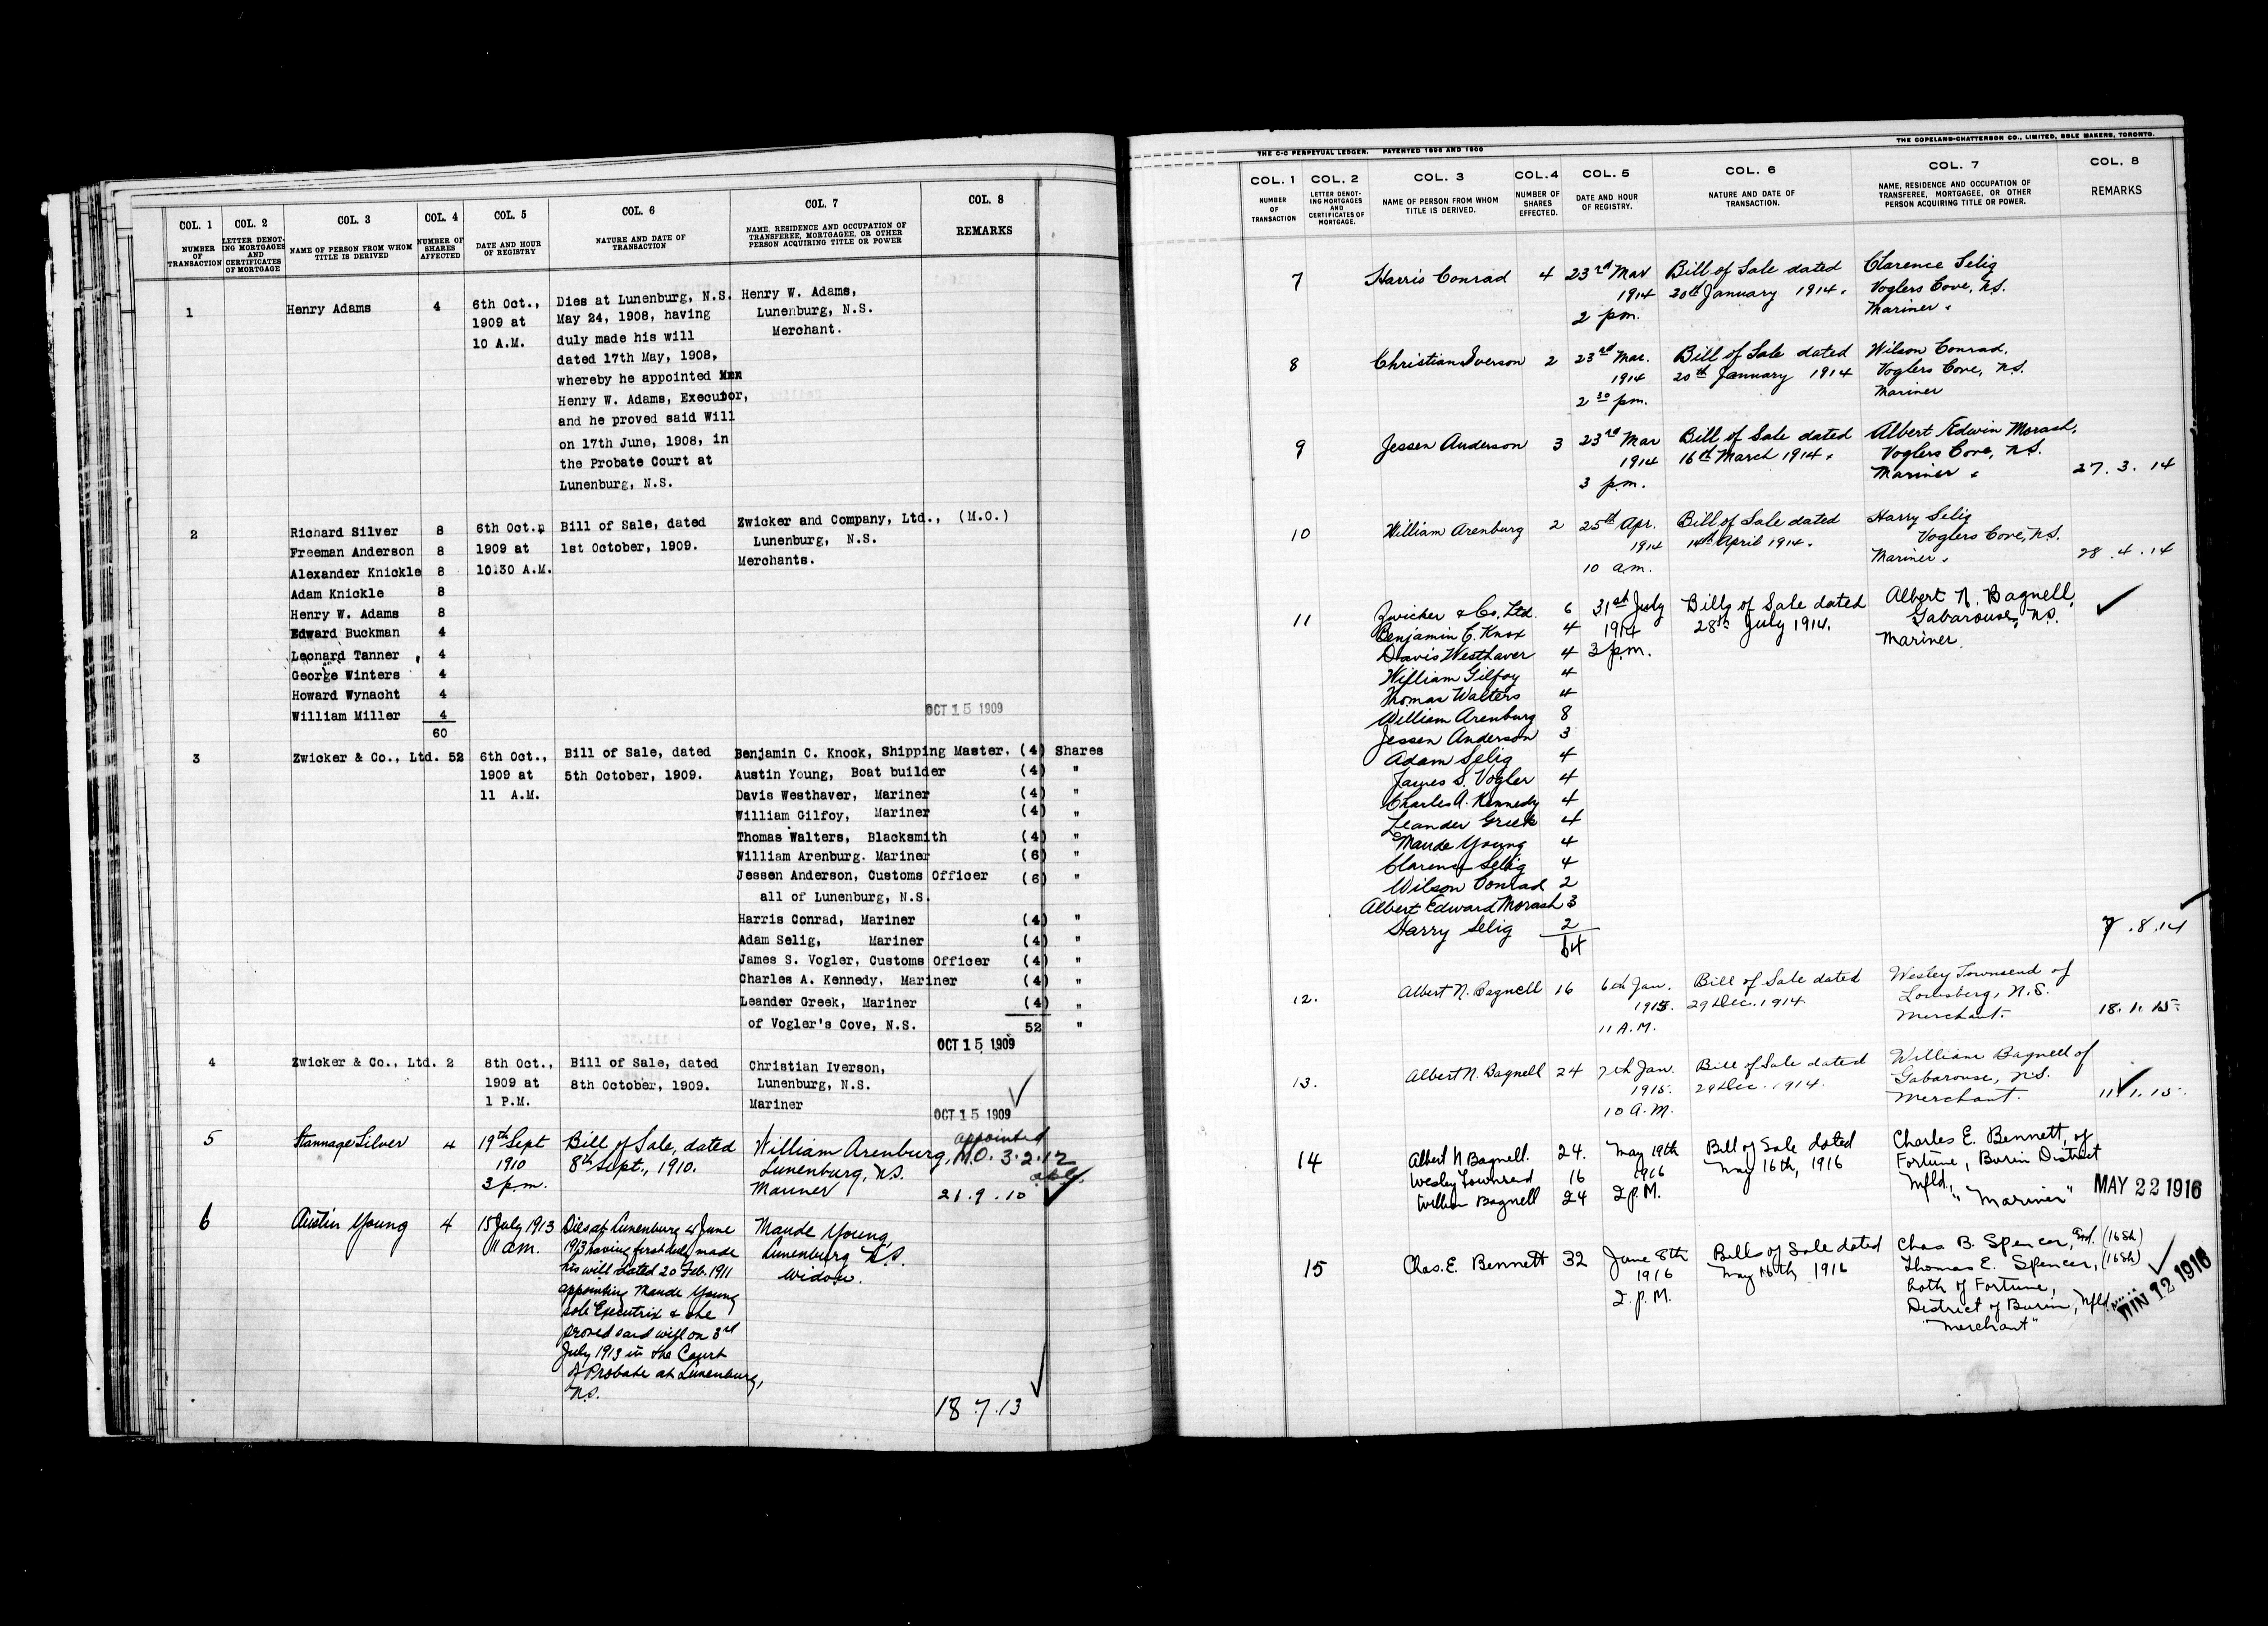 COL. 1 COL. 2 COL. 3 COL. 4 COL. 5 COL. 6 COL. 7 COL. 8
NUMBER OF TRANSACTION
LETTER DENOTING MORTGAGES AND CERTIFICATES OF MORTGAGE
NAME OF PERSON FROM WHOM TITLE IS DERIVED
NUMBER OF SHARES AFFECTED
DATE AND HOUR OF REGISTRY
NATURE AND DATE OF TRANSACTION
NAME, RESIDENCE AND OCCUPATION OF TRANSFEREE, MORTGAGEE, OR OTHER PERSON ACQUIRING TITLE OR POWER
REMARKS
1 Henry Adams 4 6th Oct., Dies at Lunenburg, N.S. Henry W. Adams,
1909 at May 24, 1908, having Lunenburg, N.S.
10 A.M. duly made his will Merchant.
dated 17th May, 1908,
whereby he appointed
Henry W. Adams, Executor,
and he proved said Will
on 17th June, 1908, in
the Probate Court at
Lunenburg, N.S.
2 Richard Silver 8 6th Oct., Bill of Sale, dated Zwicker and Company, Ltd., (M.O.)
Freeman Anderson 8 1909 at 1st October, 1909. Lunenburg, N.S.
Alexander Knickle 8 10:30 A.M. Merchants.
Adam Knickle 8
Henry W. Adams 8
Edward Buckman 4
Leonard Tanner 4
George Winters 4
Howard Wynacht 4
William Miller 4 OCT 15 1909
60
3 Zwicker & Co., Ltd. 52 6th Oct., Bill of Sale, dated Benjamin C. Knock, Shipping Master. (4) Shares
1909 at 5th October, 1909. Austin Young, Boat builder (4) "
11 A.M. Davis Westhaver, Mariner (4) "
William Gilfoy, Mariner (4) "
Thomas Walters, Blacksmith (4) "
William Arenburg. Mariner (6) "
Jessen Anderson, Customs Officer (6) "
all of Lunenburg, N.S.
Harris Conrad, Mariner (4) "
Adam Selig, Mariner (4) "
James S. Vogler, Customs Officer (4) "
Charles A. Kennedy, Mariner (4) "
Leander Greek, Mariner (4) "
of Vogler's Cove, N.S. 52 "
OCT 15 1909
4 Zwicker & Co., Ltd. 2 8th Oct., Bill of Sale, dated Christian Iverson,
1909 at 8th October, 1909. Lunenburg, N.S.
1 P.M. Mariner
OCT 15 1909
5 Stannage Silver 4 19th Sept Bill of Sale, dated William Arenburg, appointed M.O. 3.2.12
1910 8th Sept., 1910. Lunenburg, N.S.
3 p.m. Mariner 21.9.10
6 Austin Young 4 15 July 1913 Dies at Lunenburg 4 June Maude Young,
11 a.m. 1913 having first duly made Lunenburg N.S.
his will dated 20 Feb. 1911 Widow.
appointing Maude Young
sole Executrix & she
proved said will on 3rd
July 1913 in the Court
of Probate at Lunenburg,
N.S.
18.7.13
THE C-C PERPETUAL LEDGER. PATENTED 1896 AND 1900
THE COPELAND-CHATTERSON CO., LIMITED, SOLE MAKERS, TORONTO.
COL. 1 COL. 2 COL. 3 COL.4 COL. 5 COL. 6 COL. 7 COL. 8
NUMBER OF TRANSACTION
LETTER DENOTING MORTGAGES AND CERTIFICATES OF MORTGAGE.
NAME OF PERSON FROM WHOM TITLE IS DERIVED.
NUMBER OF SHARES EFFECTED.
DATE AND HOUR OF REGISTRY.
NATURE AND DATE OF TRANSACTION.
NAME, RESIDENCE AND OCCUPATION OF TRANSFEREE, MORTGAGEE, OR OTHER PERSON ACQUIRING TITLE OR POWER.
REMARKS
7 Harris Conrad 4 23rd Mar Bill of Sale dated Clarence Selig
1914 20th January 1914. Voglers Cove, N.S.
2 p.m. Mariner.
8 Christian Iverson 2 23rd Mar. Bill of Sale dated Wilson Conrad,
1914 20th January 1914 Voglers Cove, N.S.
2 30 p.m. Mariner
9 Jessen Anderson 3 23rd Mar Bill of Sale dated Albert Edwin Morash,
1914 16th March 1914. Voglers Cove, N.S.
3 p.m. Mariner. 27.3.14
10 William Arenburg 2 25th Apr. Bill of Sale dated Harry Selig
1914 14th April 1914. Voglers Cove, N.S.
10 a.m. Mariner. 28.4.14
11 Zwicker & Co. Ltd. 6 31st July Bills of Sale dated Albert N. Bagnell,
Benjamin C. Knox 4 1914 28th July 1914. Gabarouse, N.S.
Davis Westhaver 4 3 p.m. Mariner.
William Gilfoy 4
Thomas Walters 4
William Arenburg 8
Jessen Anderson 3
Adam Selig 4
James S. Vogler 4
Charles A. Kennedy 4
Leander Greek 4
Maude Young 4
Clarence Selig 4
Wilson Conrad 2
Albert Edward Morash 3
Harry Selig 2 7.8.14
64
12. Albert N. Bagnell 16 6th Jan. Bill of Sale dated Wesley Townsend of
1915. 29 Dec. 1914 Louisberg, N.S.
11 A.M. Merchant. 18.1.15
13. Albert N. Bagnell 24 7th Jan. Bill of Sale dated William Bagnell of
1915. 29 Dec. 1914. Gabarouse, N.S.
10 A.M. Merchant. 11.1.15
14 Albert N Bagnell. 24. May 19th Bill of Sale dated Charles E. Bennett, of
Wesley Townsend 16 1916 May 16th, 1916 Fortune, Burin District
William Bagnell 24 2 p.M. Nfld., "Mariner" MAY 22 1916
15 Chas. E. Bennett 32 June 8th Bills of Sale dated Chas B. Spencer, and. (16 Sh)
1916 May 16th 1916 Thomas E. Spencer, (16 Sh)
2. p. M. both of Fortune,
District of Burin, Nfld.
"Merchant" JUN 12 1916